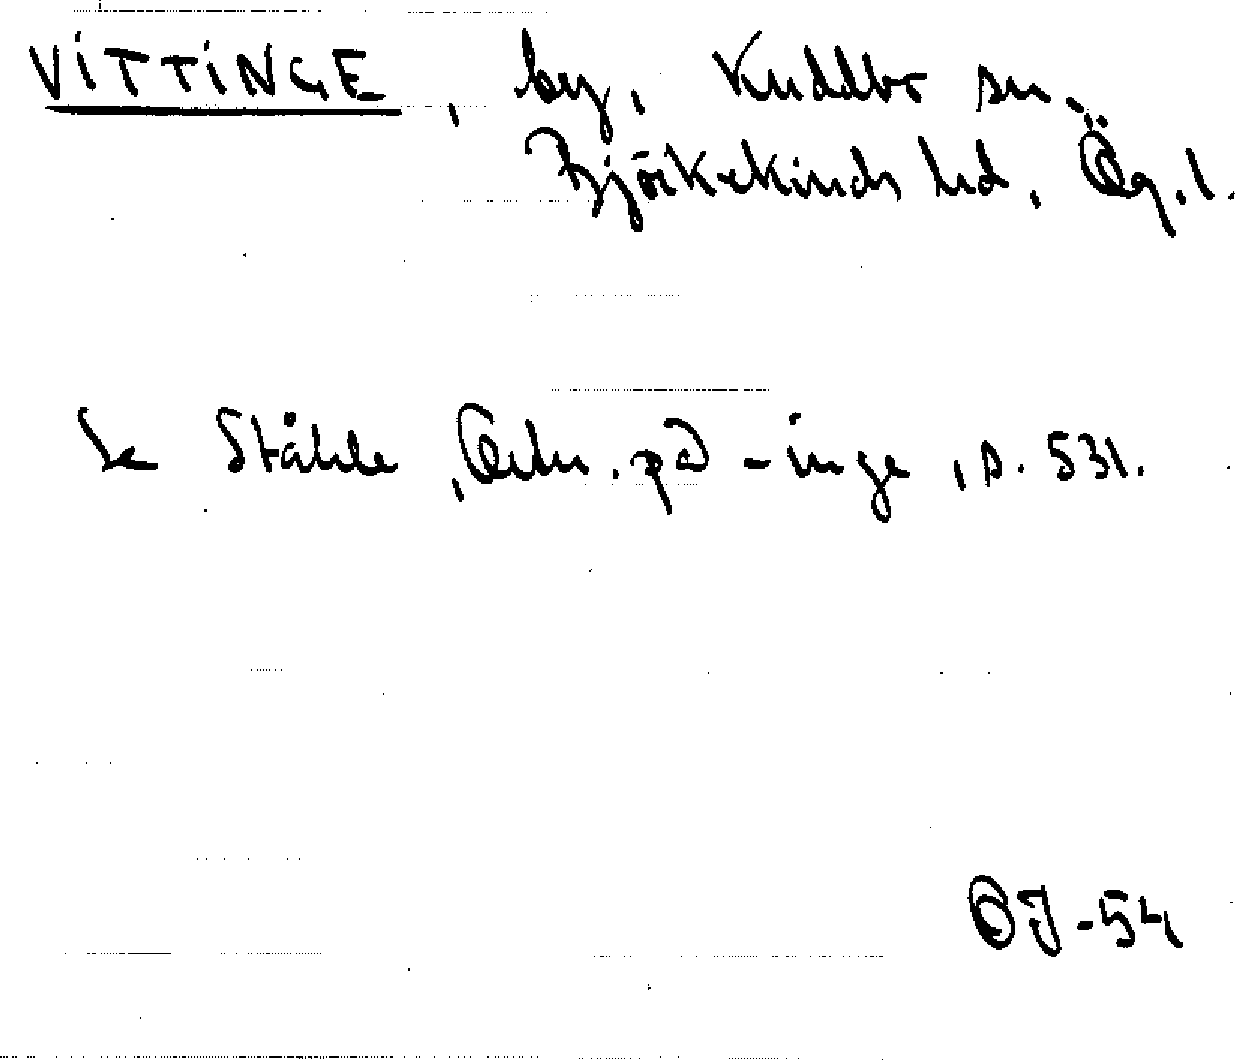 VITTINGE, by, Kuddby sn.
Björkekinds hd, Ög. l.
Se Ståhle, Ortn. på -inge, s. 531.
OJ-54